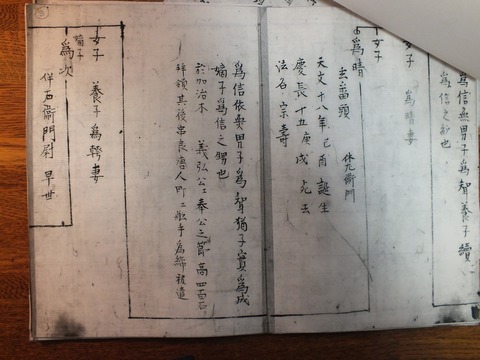 為信無男子為智養子續
為信之卸也
女子　為晴妻
女子
為晴　伴九衛門
玄蕃頭
天文十八年己酉誕生
慶長十五庚戌死去
法名宗壽
為信依無男子為智猶子實為成
嫡子為信之甥也
於加治木　義弘公工奉公之節高四百石
拝領其後串良唐人町工船手為締被遣
女子　養子為韓妻
嫡子
為次
伴右衛門尉　早世